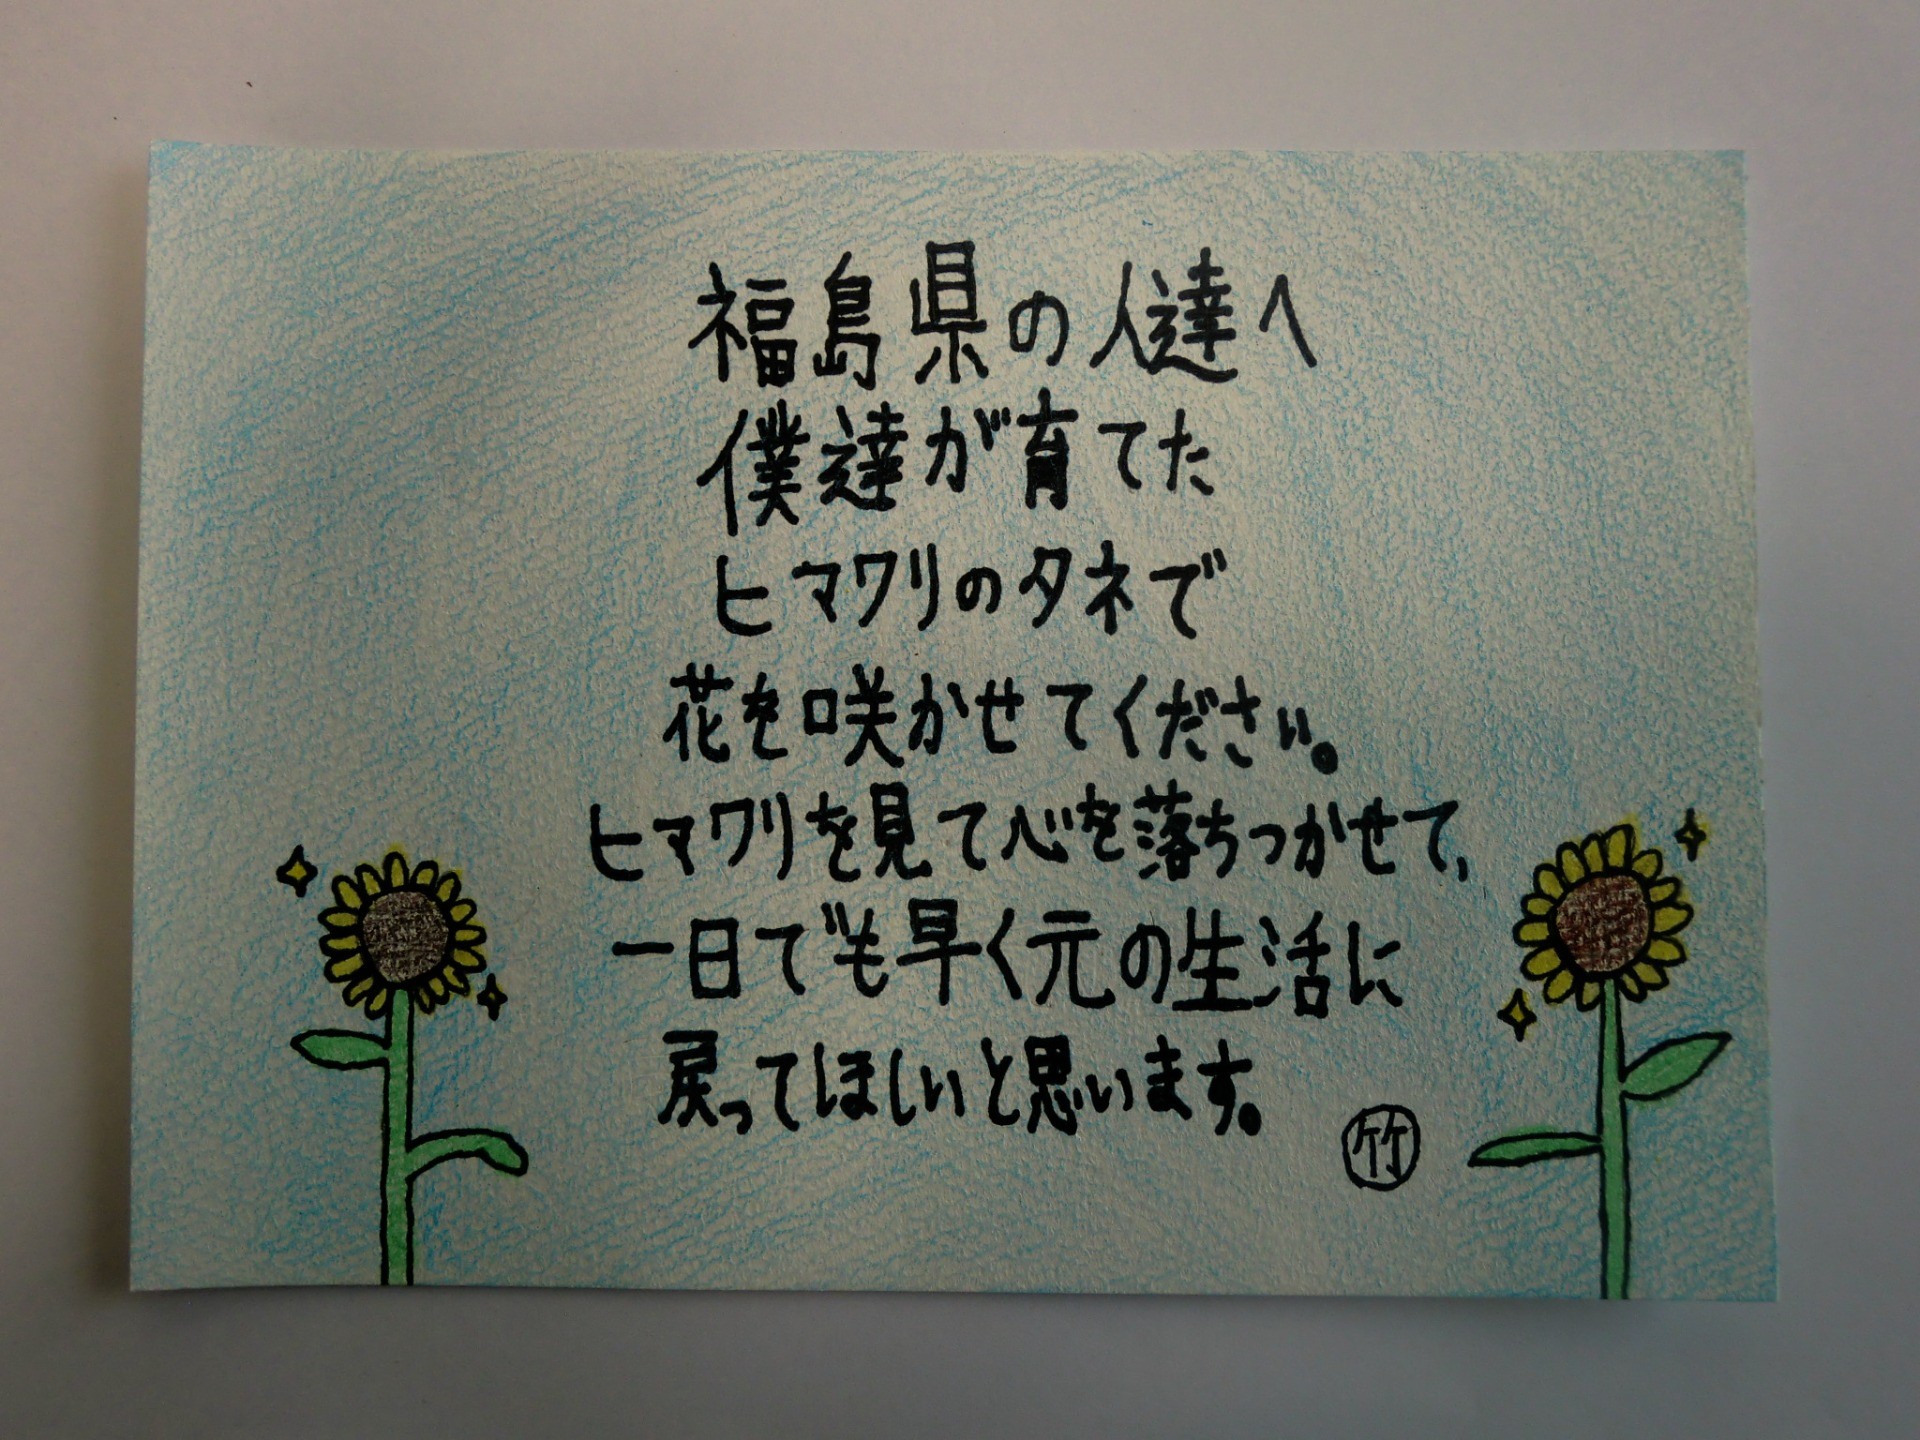 福島県の人達へ
僕達が育てた
ヒマワリのタネで
花を咲かせてください。
ヒマワリを見て心を落ちつかせて、
一日でも早く元の生活に
戻ってほしいと思います。
竹